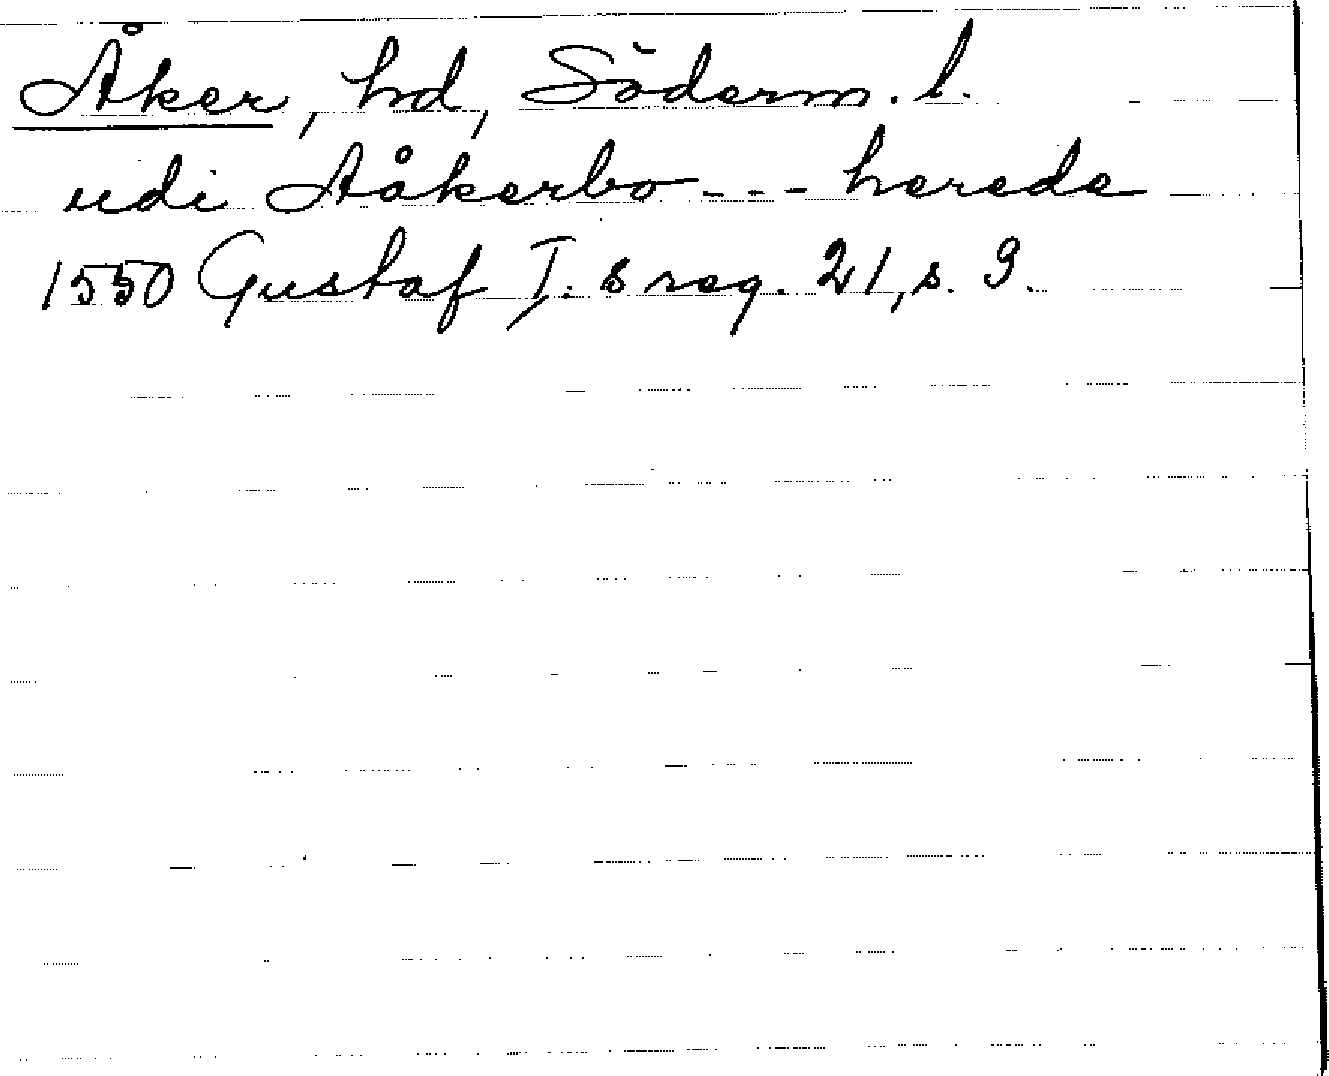 Åker, hd, Söderm. l.
udi Aåkerbo - - - herede
1550 Gustaf I. s reg. 21, s. 9.